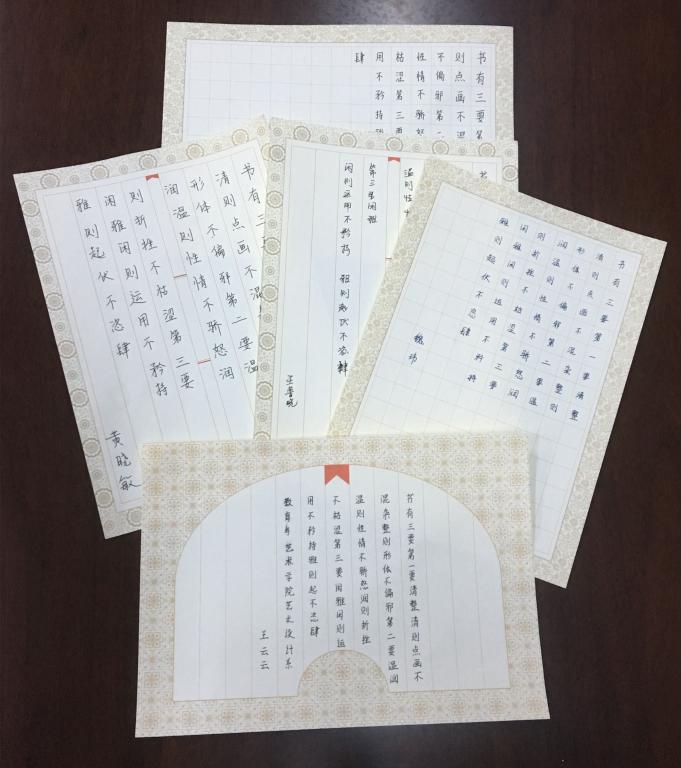 书有三要第
则点画不混
不偏邪第二
性情不骄怒
枯涩第三要
用不矜持
肆
书有三
清则点画不混
形体不偏邪第二要温
润温则性情不骄怒润
则折挫不枯涩第三要
闲雅闲则运用不矜持
雅则起伏不恣肆
黄晓敏
书
温则性
第三要闲雅
闲则运用不矜持 雅则起伏不恣肆
书有三要第一要清整
清则点画不混杂整则
形体不偏邪第二要温
润温则性情不骄怒润
则折挫不枯涩第三要
闲雅闲则运用不矜持
雅则起伏不恣肆
魏玮
书有三要第一要清整清则点画不
混杂整则形体不偏邪第二要温润
温则性情不骄怒润则折挫
不枯涩第三要闲雅闲则运
用不矜持雅则起不恣肆
教育与艺术学院艺术设计系
王云云